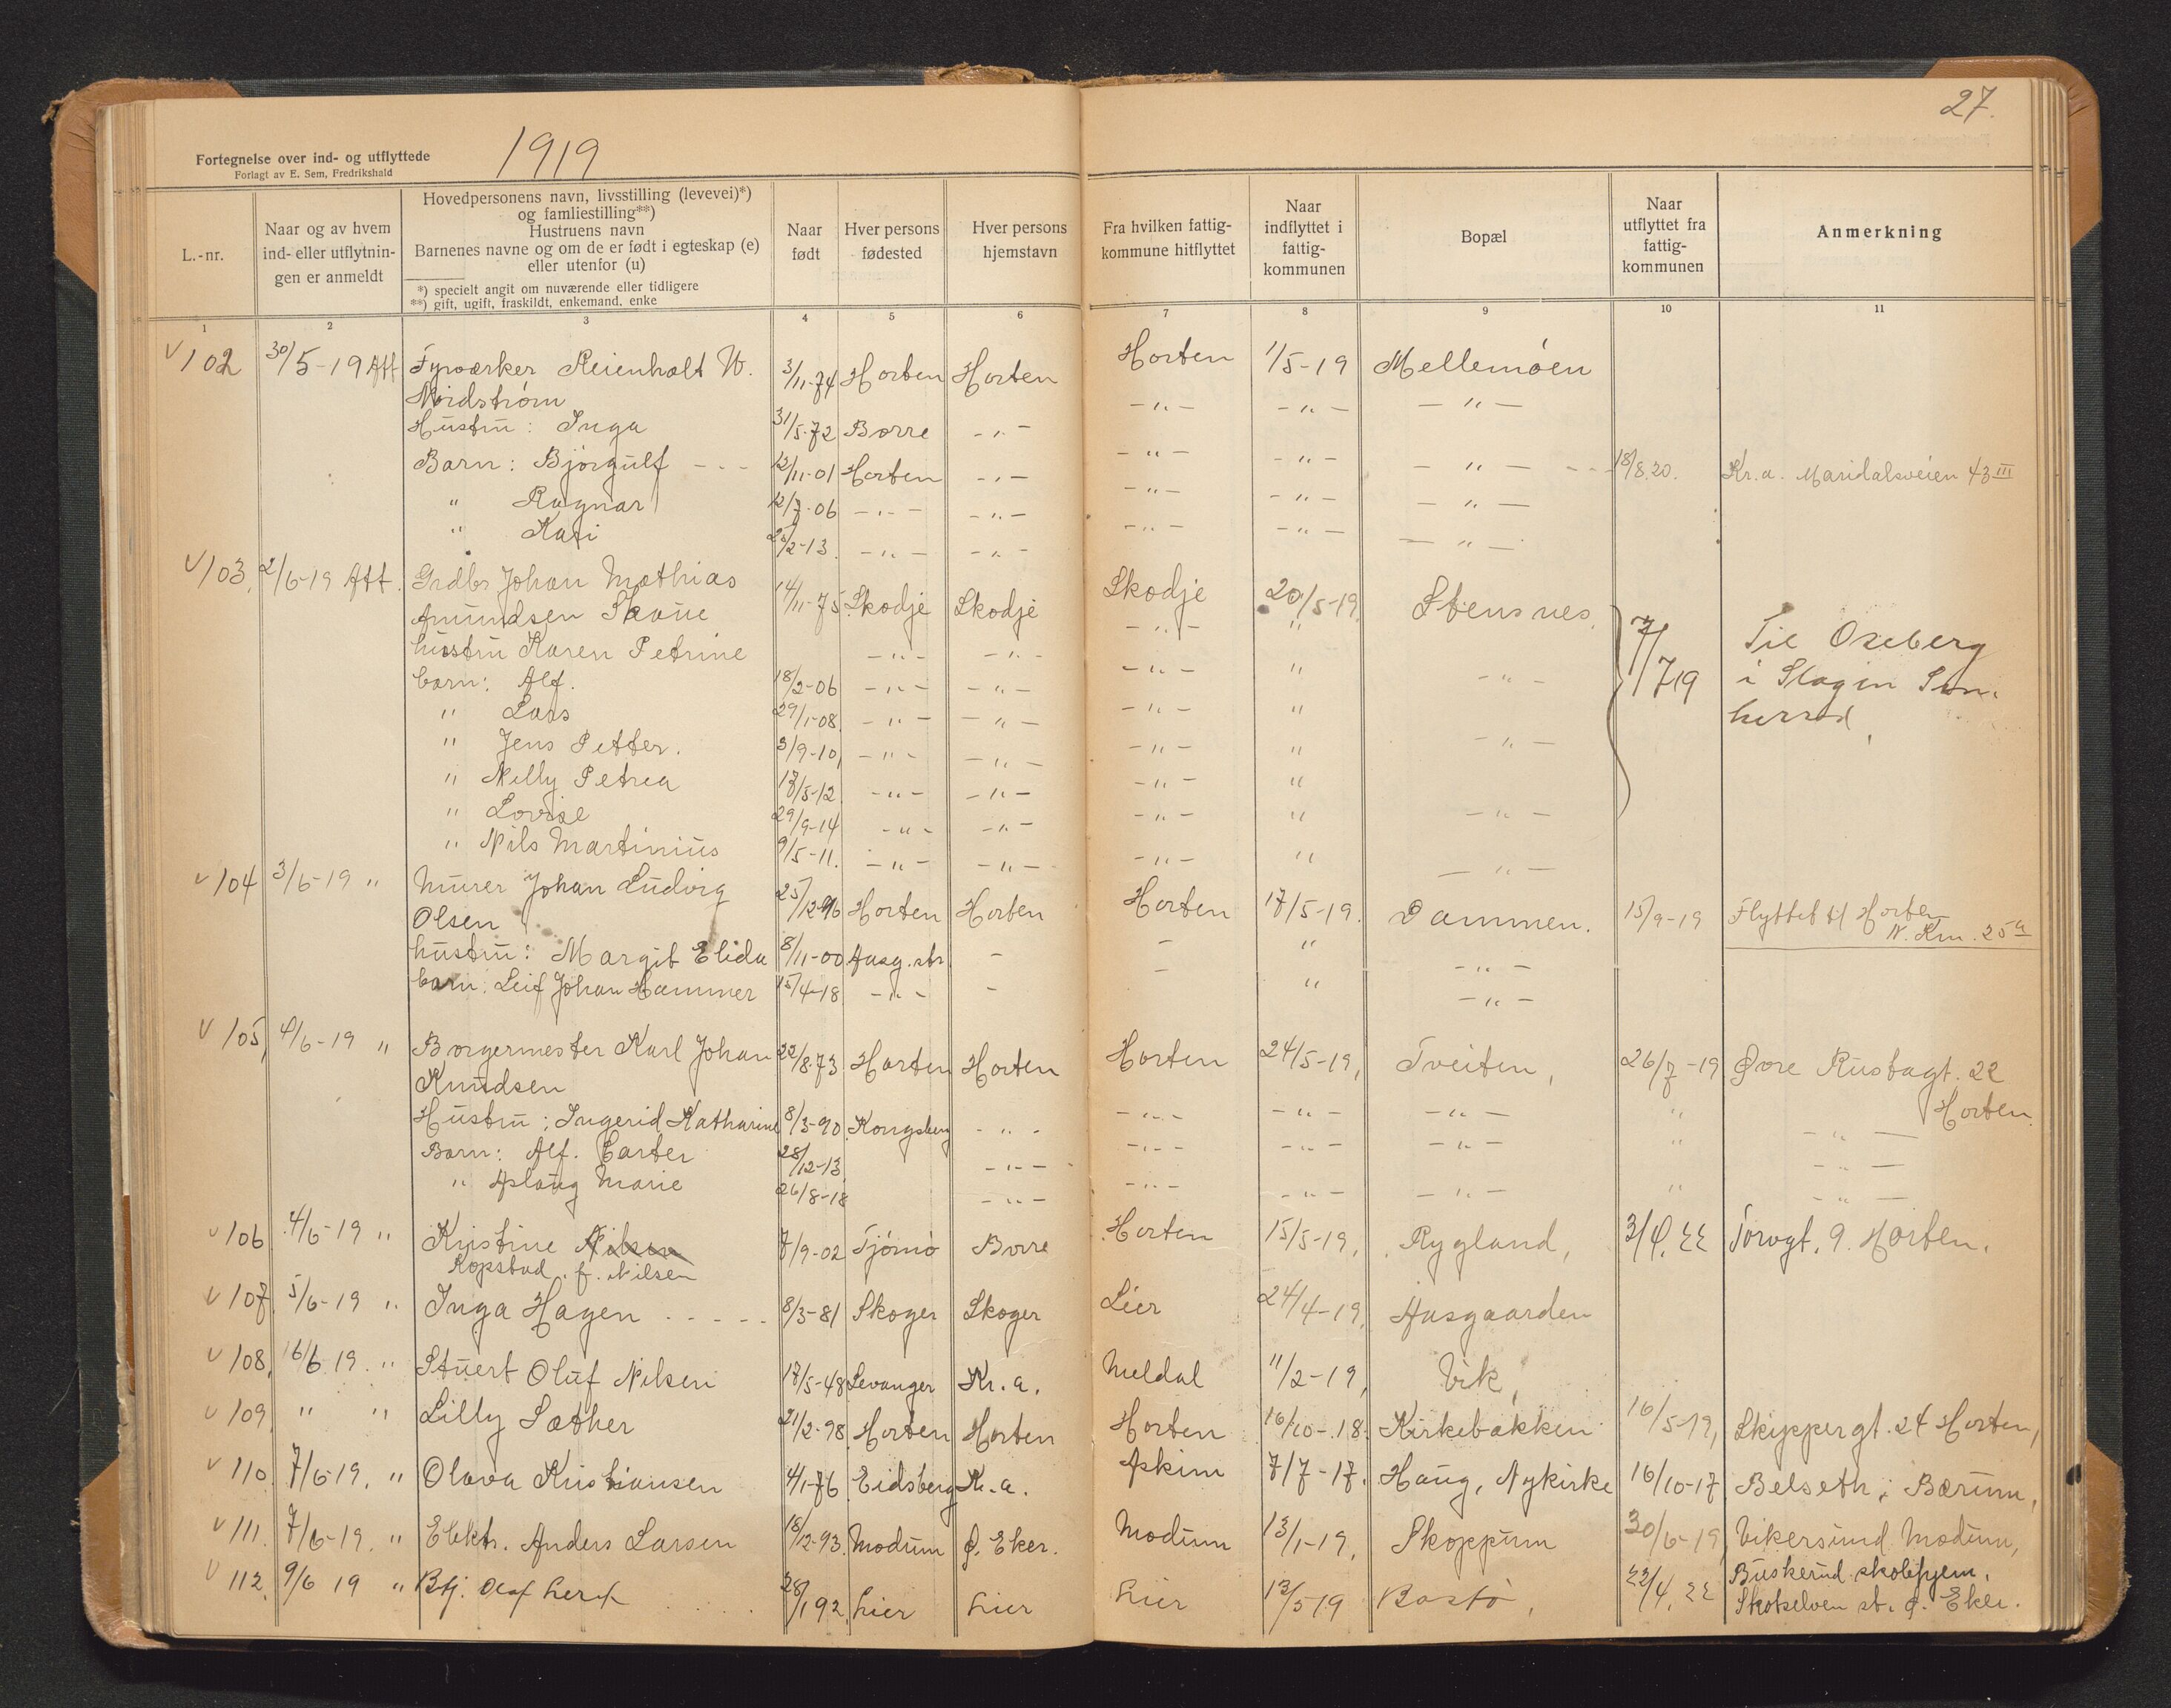 27.
Fortegnelse over ind- og utflyttede
Forlagt av E. Sem, Fredrikshald
1919
L.-nr.
Naar og av hvem ind- eller utflytnin- gen er anmeldt
Hovedpersonens navn, livsstilling (levevei)*)
og famliestilling**)
Hustruens navn
Barnenes navne og om de er født i egteskap (e)
eller utenfor (u)
*) specielt angit om nuværende eller tidligere
**) gift, ugift, fraskildt, enkemand, enke
Naar født
Hver persons fødested
Hver persons hjemstavn
Fra hvilken fattig- kommune hitflyttet
Naar indflyttet i fattig- kommunen
Bopæl
Naar utflyttet fra fattig- kommunen
Anmerkning
1 2 3 4 5 6 7 8 9 10 11
√ 102 30/5-19 Att Fyrværker Reienholt W. 3/11-74 Horten Horten Horten 1/5-19 Mellemøen
Nordstrøm
Hustru: Inga 31/5-72 Borre -"- -"- -"- -"-
Barn: Bjørgulf - - - 12/11-01 Horten -"- -"- -"- -"- - - 18/8.20. Kr.a. Maridalsveien 43 III
" Ragnar 12/7-06 -"- -"- -"- -"- -"-
" Kari 25/2-13. -"- -"- -"- -"- -"-
√ 103. 2/6-19 Att. Grdbr Johan Mathias
Amundsen Skoue 14/11-75 Skodje Skodje Skodje 20/5-19. Stensnes. 7/719 Til Oseberg
hustru Karen Petrine -"- -"- -"- "
barn: Alf. 18/2-06 -"- -"- -"- " -"- i Slagen Sem
" Lars 29/1-08 -"- -"- -"- " herred
" Jens Petter. 3/9-10, -"- -"- -"- " -"-
" Nelly Petrea 17/5-12 -"- -"- -"- "
" Lovise 29/9-14 -"- -"- -"- " -"-
" Nils Martinius 9/5-11. -"- -"- -"- " -"-
√ 104 3/6-19 " Murer Johan Ludvig
Olsen 25/12-96 Horten Horten Horten 17/5-19. Dammen. 15/9-19 Flyttet til Horten
N. Km. 25a
hustru: Margit Elida 8/11-00 Aasg.str. - - " -"-
barn: Leif Johan Hammer 15/4-18 -"- - - " -"-
√ 105, 4/6-19 " Borgermester Karl Johan 22/8-73 Horten Horten Horten 24/5-19, Tveiten, 26/7-19 Øvre Rustagt. 22
Knudsen Horten.
Hustru: Ingerid Katharine 8/3-90 Kongsberg -"- -"- -"- -"- " -"-
Barn: Alf. Carter 28/12-13 -"- -"- -"- -"- " -"-
" Aslaug Marie 26/8-18 -"- -"- -"- -"- " -"-
√ 106 4/6-19 " Kristine Nilsen 7/9-02 Tjømø Borre Horten 15/5-19, Rygland, 3/4.22 Torvgt. 9. Horten.
Kopstad f. Nilsen
√ 107 5/6-19 " Inga Hagen - - - - - 8/3-81 Skoger Skoger Lier 24/4-19, Aasgaarden
√ 108. 16/6 19. " Stuert Oluf Nilsen 17/5-48 Levanger Kr.a. Meldal 11/2-19, Vik,
√ 109. " " Lilly Sæther 21/2-98. Horten Horten Horten 16/10-18. Kirkebakken 16/5-19, Skippergt. 24 Horten,
√ 110. 7/6-19. " Olava Kristiansen 4/1-76 Eidsberg Kr.a. Askim 7/7-17. Haug, Nykirke 16/10-17 Belseth i Bærum,
√ 111. 7/6-19. " Elektr. Anders Larsen 18/12-93. Modum Ø. Eker. Modum 13/1-19, Skoppum 30/6-19, Vikersund Modum,
√ 112. 9/6 19 " Btj. Olaf Lerch 28/1 92. Lier Lier Lier 13/5-19 Bastø, 22/4.22 Buskerud skolehjem.
Skotselven st. Ø. Eker.